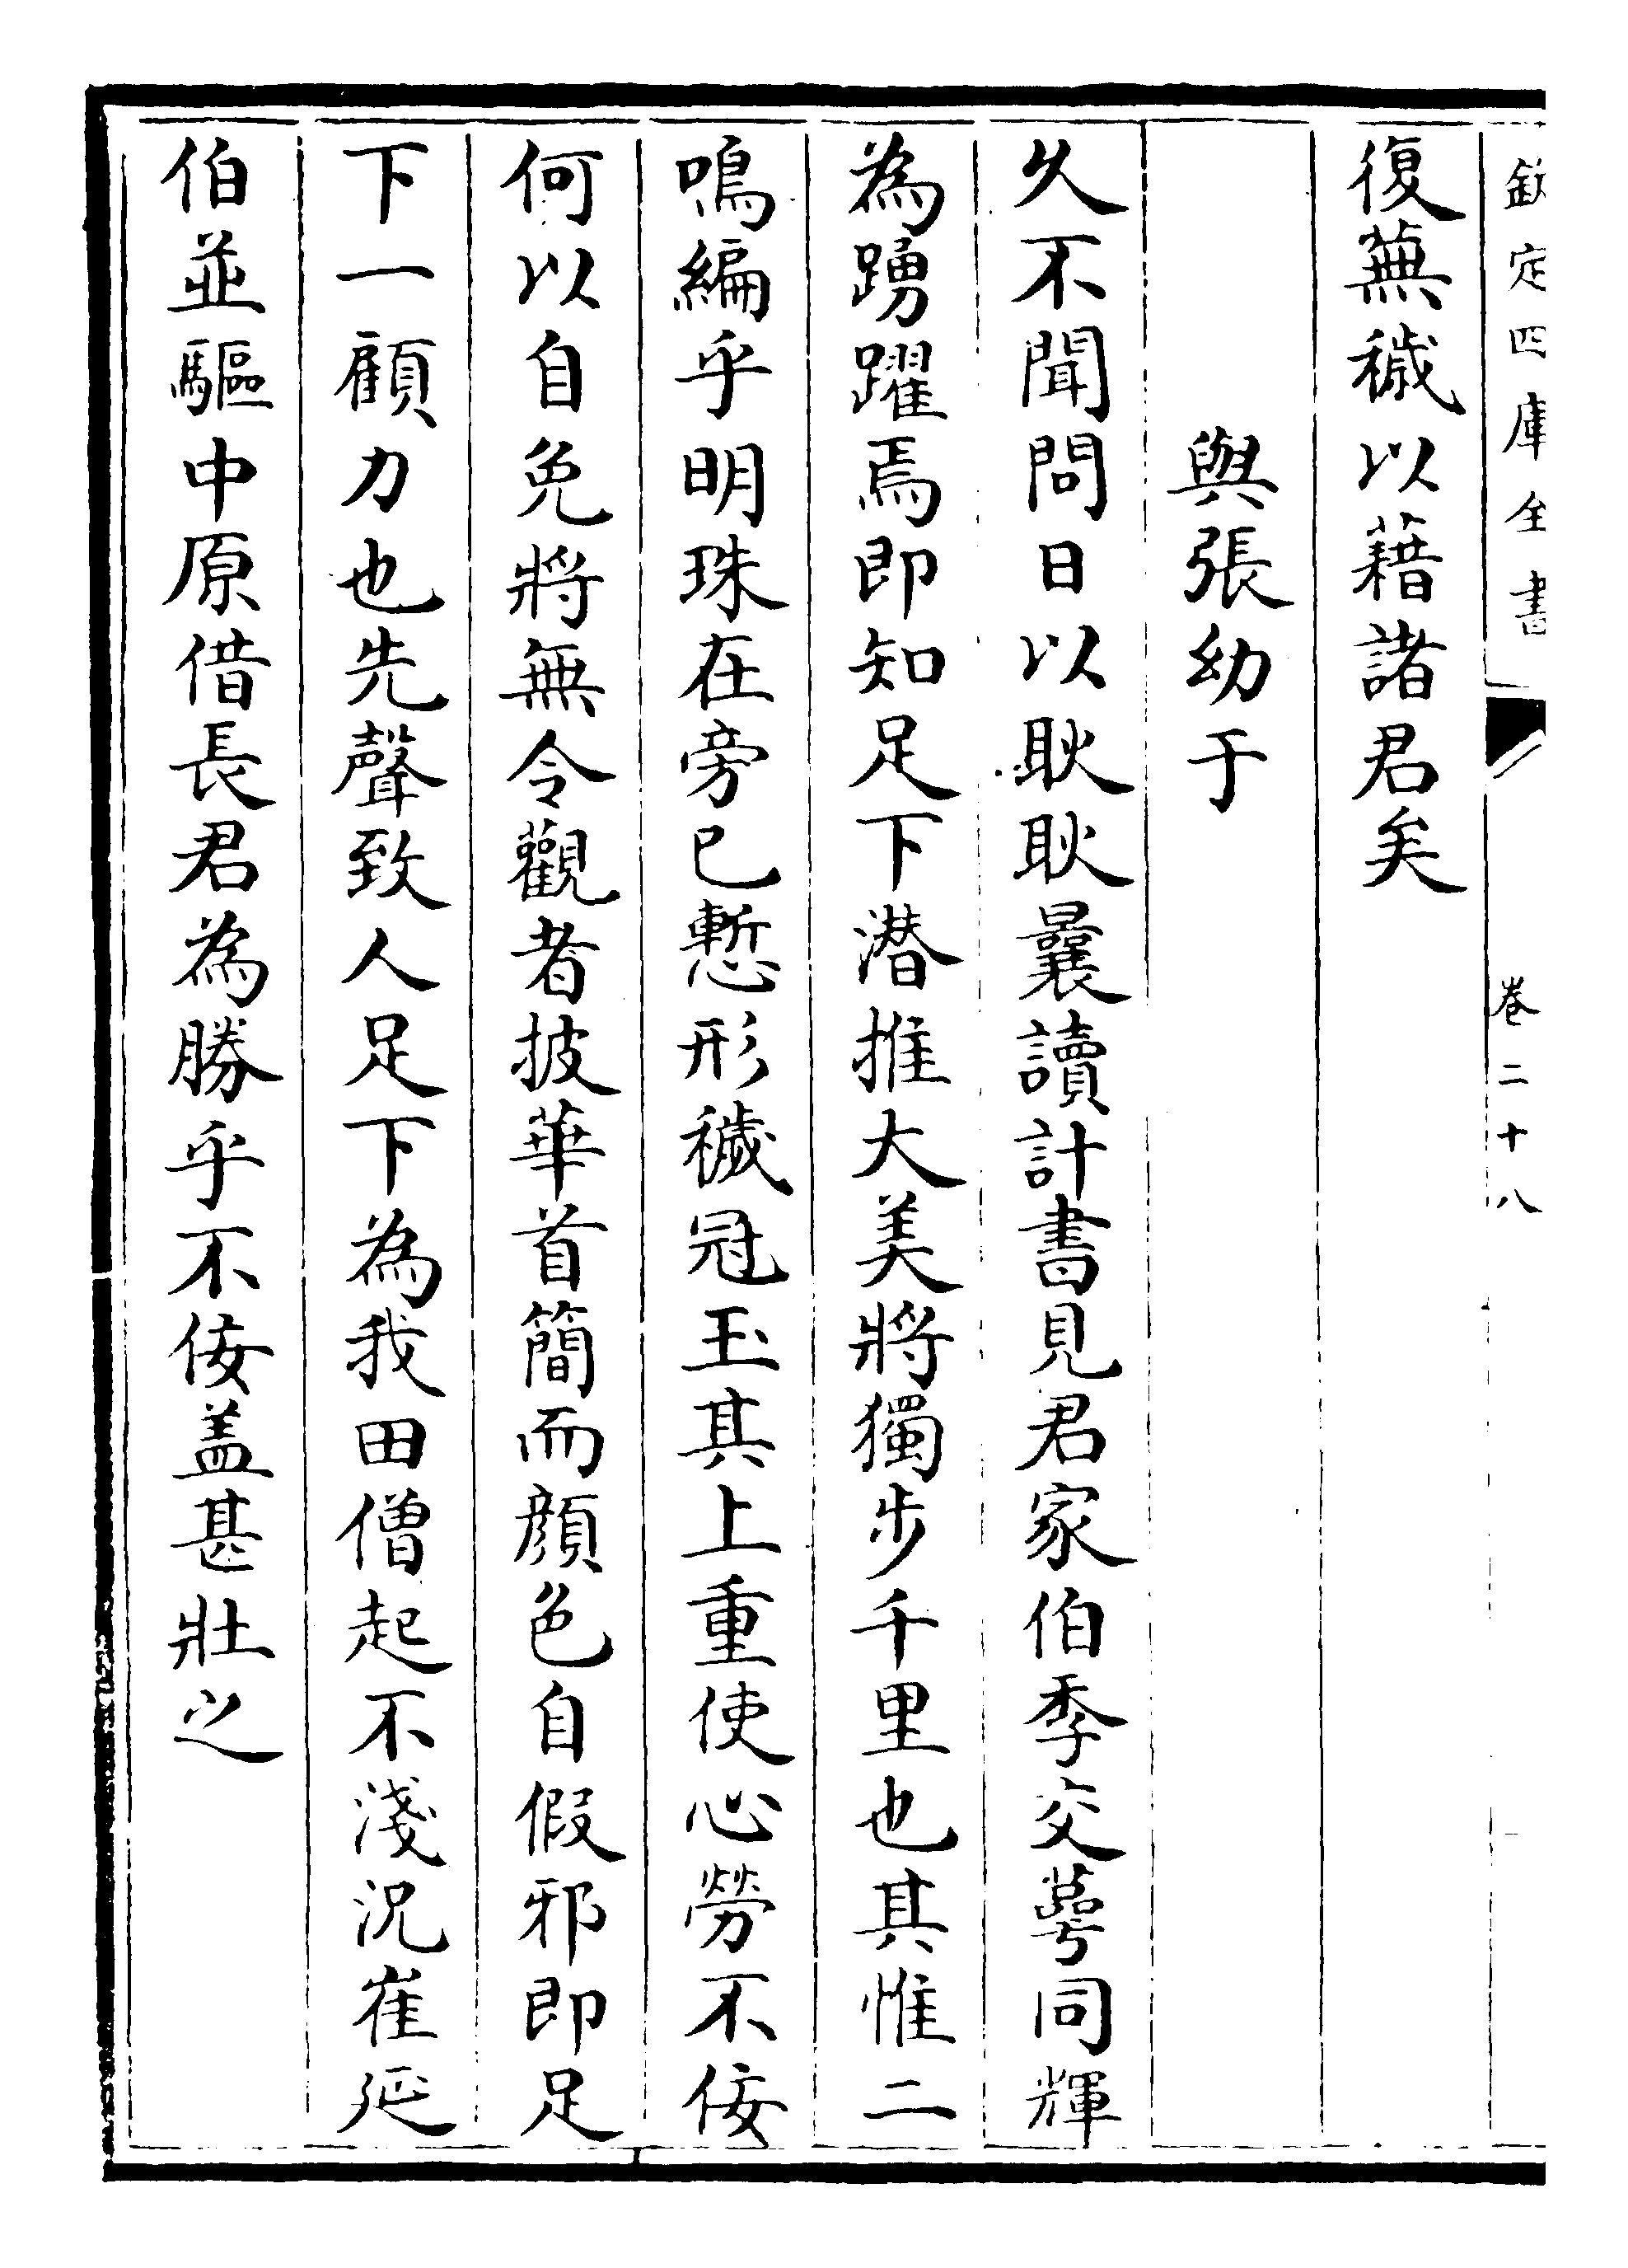 欽定四庫全書
卷二十八
復蕪穢以藉諸君矣
與張幼于
久不聞問日以耿耿曩讀計書見君家伯季交萼同輝
為踴躍焉即知足下潜推大美將獨步千里也其惟二
鳴編乎明珠在旁已慙形穢冠玉其上重使心勞不佞
何以自免將無令觀者披華首簡而顔色自假邪即足
下一顧力也先聲致人足下為我田僧起不淺況崔延
伯並驅中原借長君為勝乎不佞盖甚壯之